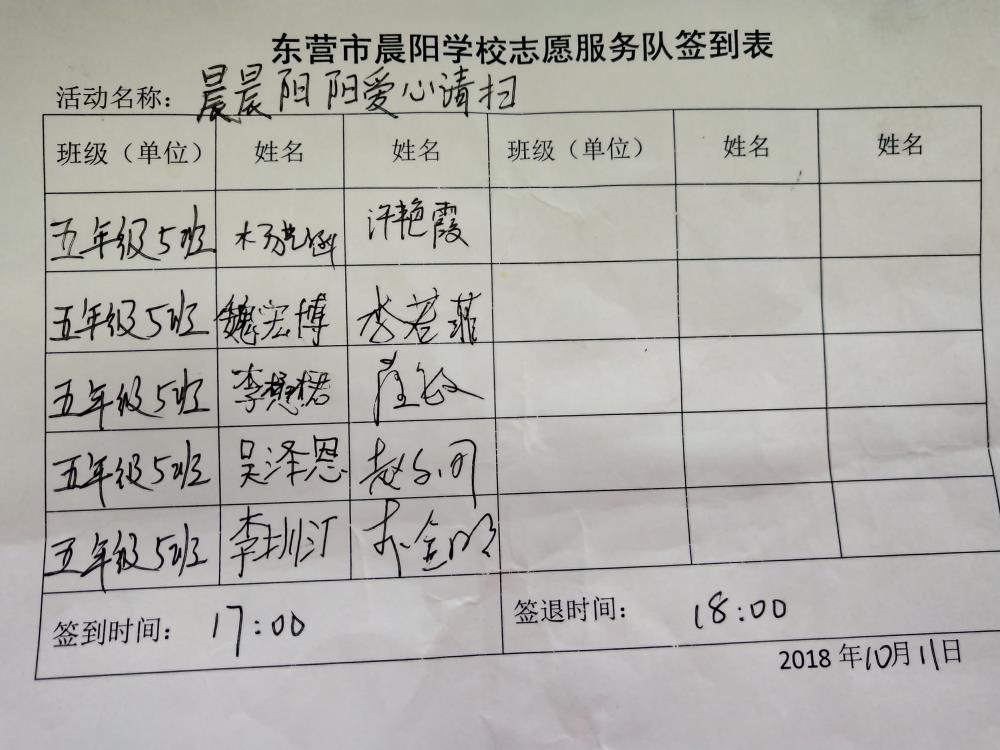 东营市晨阳学校志愿服务队签到表
活动名称：晨晨阳阳爱心请扫
班级（单位） 姓名 姓名 班级（单位） 姓名 姓名
五年级5班 许艳霞
五年级5班 魏宏博 李若菲
五年级5班 李懋桾 崔敏
五年级5班 吴泽恩
五年级5班 李圳汀
签到时间：17:00 签退时间：18:00
2018年10月11日